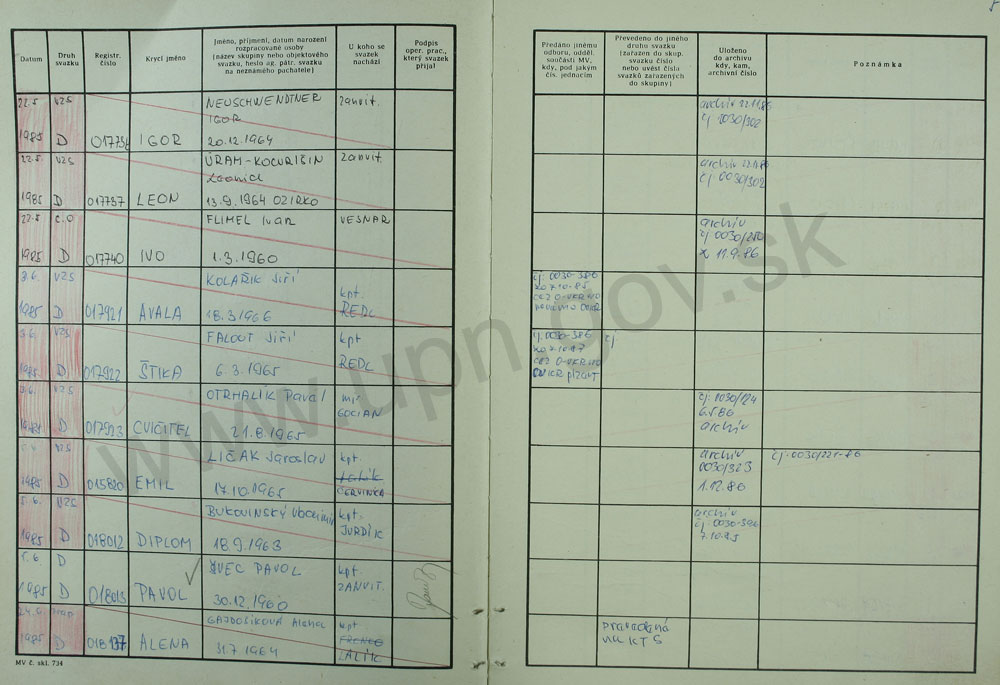 Datum
Druh
svazku
Registr.
číslo
Krycí jméno
Jméno, příjmení, datum narození
rozpracované osoby
(název skupiny nebo objektového
svazku, heslo ag. pátr. svazku
na neznámého pachatele)
U koho se
svazek
nachází
Podpis
oper. prac.,
který svazek
přijal
Předáno jinému
odboru, odděl.
součásti MV,
kdy, pod jakým
čís. jednacím
Převedeno do jiného
druhu svazku
(zařazen do skup.
svazku číslo
nebo uvést čísla
svazků zařazených
do skupiny)
Uloženo
do archivu
kdy, kam,
archivní číslo
Poznámka
22.5 VZS NEUSCHWENDTNER Zanvit.
IGOR
1985 D 017736 IGOR 20.12.1964
archiv 22.11.85
čj 0030/302
22.5. VZS ÚRAM-KOCURIŠIN Zanvit.
Leonid
1985 D 017737 LEON 13.9.1964 OZIRKO
archiv
čj 0030/302
22.5 Č.O FLIMEL Ivan VESNAR
1985 D 017740 IVO 1.3.1960
archiv
čj 0030/250
11.9.86
3.6. VZS KOLAŘIK JIŘÍ kpt.
1985 D 017921 AVALA 18.3.1966 REDL
čj. 0030-386
VZS FALOUT JIŘÍ kpt
1985 D 017922 ŠTIKA 6.3.1965 REDL
čj. 0030-386
čj
VZS OTRHALÍK Pavol
GOCIAN
D 017923 CVIČITEL 21.8.1965
čj. 0030/124
6.5.86
archiv
VZS LIČÁK Jaroslav kpt.
1985 D 015820 EMIL 17.10.1965 ČERVINKA
archiv
0030/323
1.12.86
čj. 0030/221-86
5.6. VZS BUKOVINSKÝ kpt.
JURDÍK
1985 D 018012 DIPLOM 18.9.1963
archiv
čj. 0030-396
7.10.85
5.6 D ŠVEC PAVOL kpt.
ZANVIT.
1985 D 018013 PAVOL 30.12.1960
24.6. GAJDOŠIKOVÁ Alena kpt
1985 D 018137 ALENA 31.7.1964 LALÍK
na KTS
MV č. skl. 734
www.upn.gov.sk